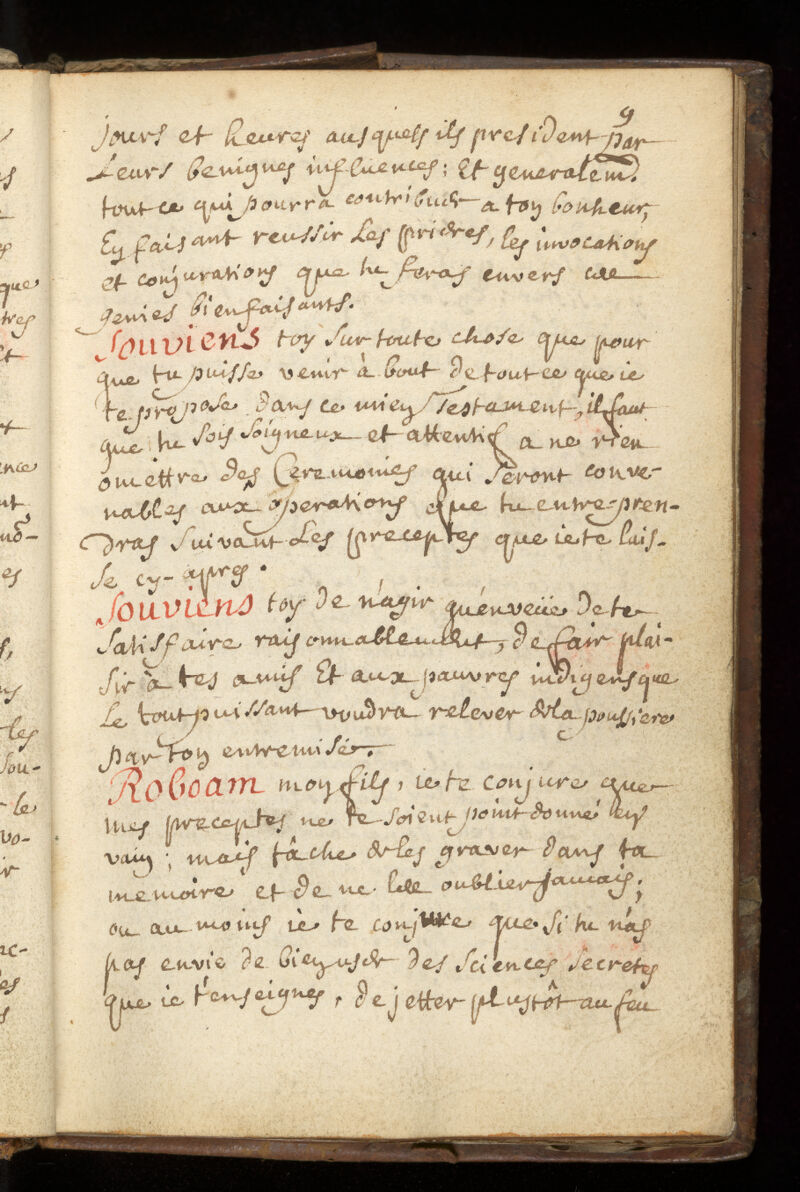 9
jours et heures ausquels ils president par
Leurs benignes influences; Et generalem.
tout ce qui pourra contribuer a toy bonheur,
Ey faisant reussir Les prieres, les invocations
et conjurations que tu feras envers
genies bienfaisants.
Souviens toy sur toute chose que pour
que tu puisse venir à bout de tout ce que ie
te propose dans ce miey Testament, il faut
que tu sois soigneux et attentif a ne rien
omettre des Ceremonies qui seront conve-
nables aux operations que tu entrepren-
dras suivant Les preceptes que ie te lais-
se cy-apres.
Souviens toy de n'agir qu'en veüe de te
satisfaire raisonnablement, de fair plai-
sir à tes amis Et aux pauvres indigens que
Le tout puissant voudra relever de la poussiere
par toy entremise.
Roboam moy fils, ie te conjure que
mes preceptes ne te soient point donné ey
vaiy; mais tâche de les graver dans ta
memoire et de ne les oublier jamais;
ou au moins ie te conjure que si tu n'as
pas envie de biey user des sciences secretes
que ie t'enseignes, de jetter plustôt au feu
que
tres
et
nce
les
sou-
le
vo-